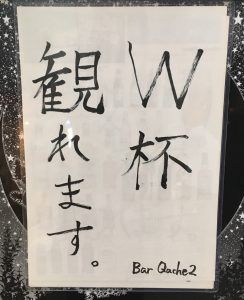 W杯
観れます。
Bar Qache2